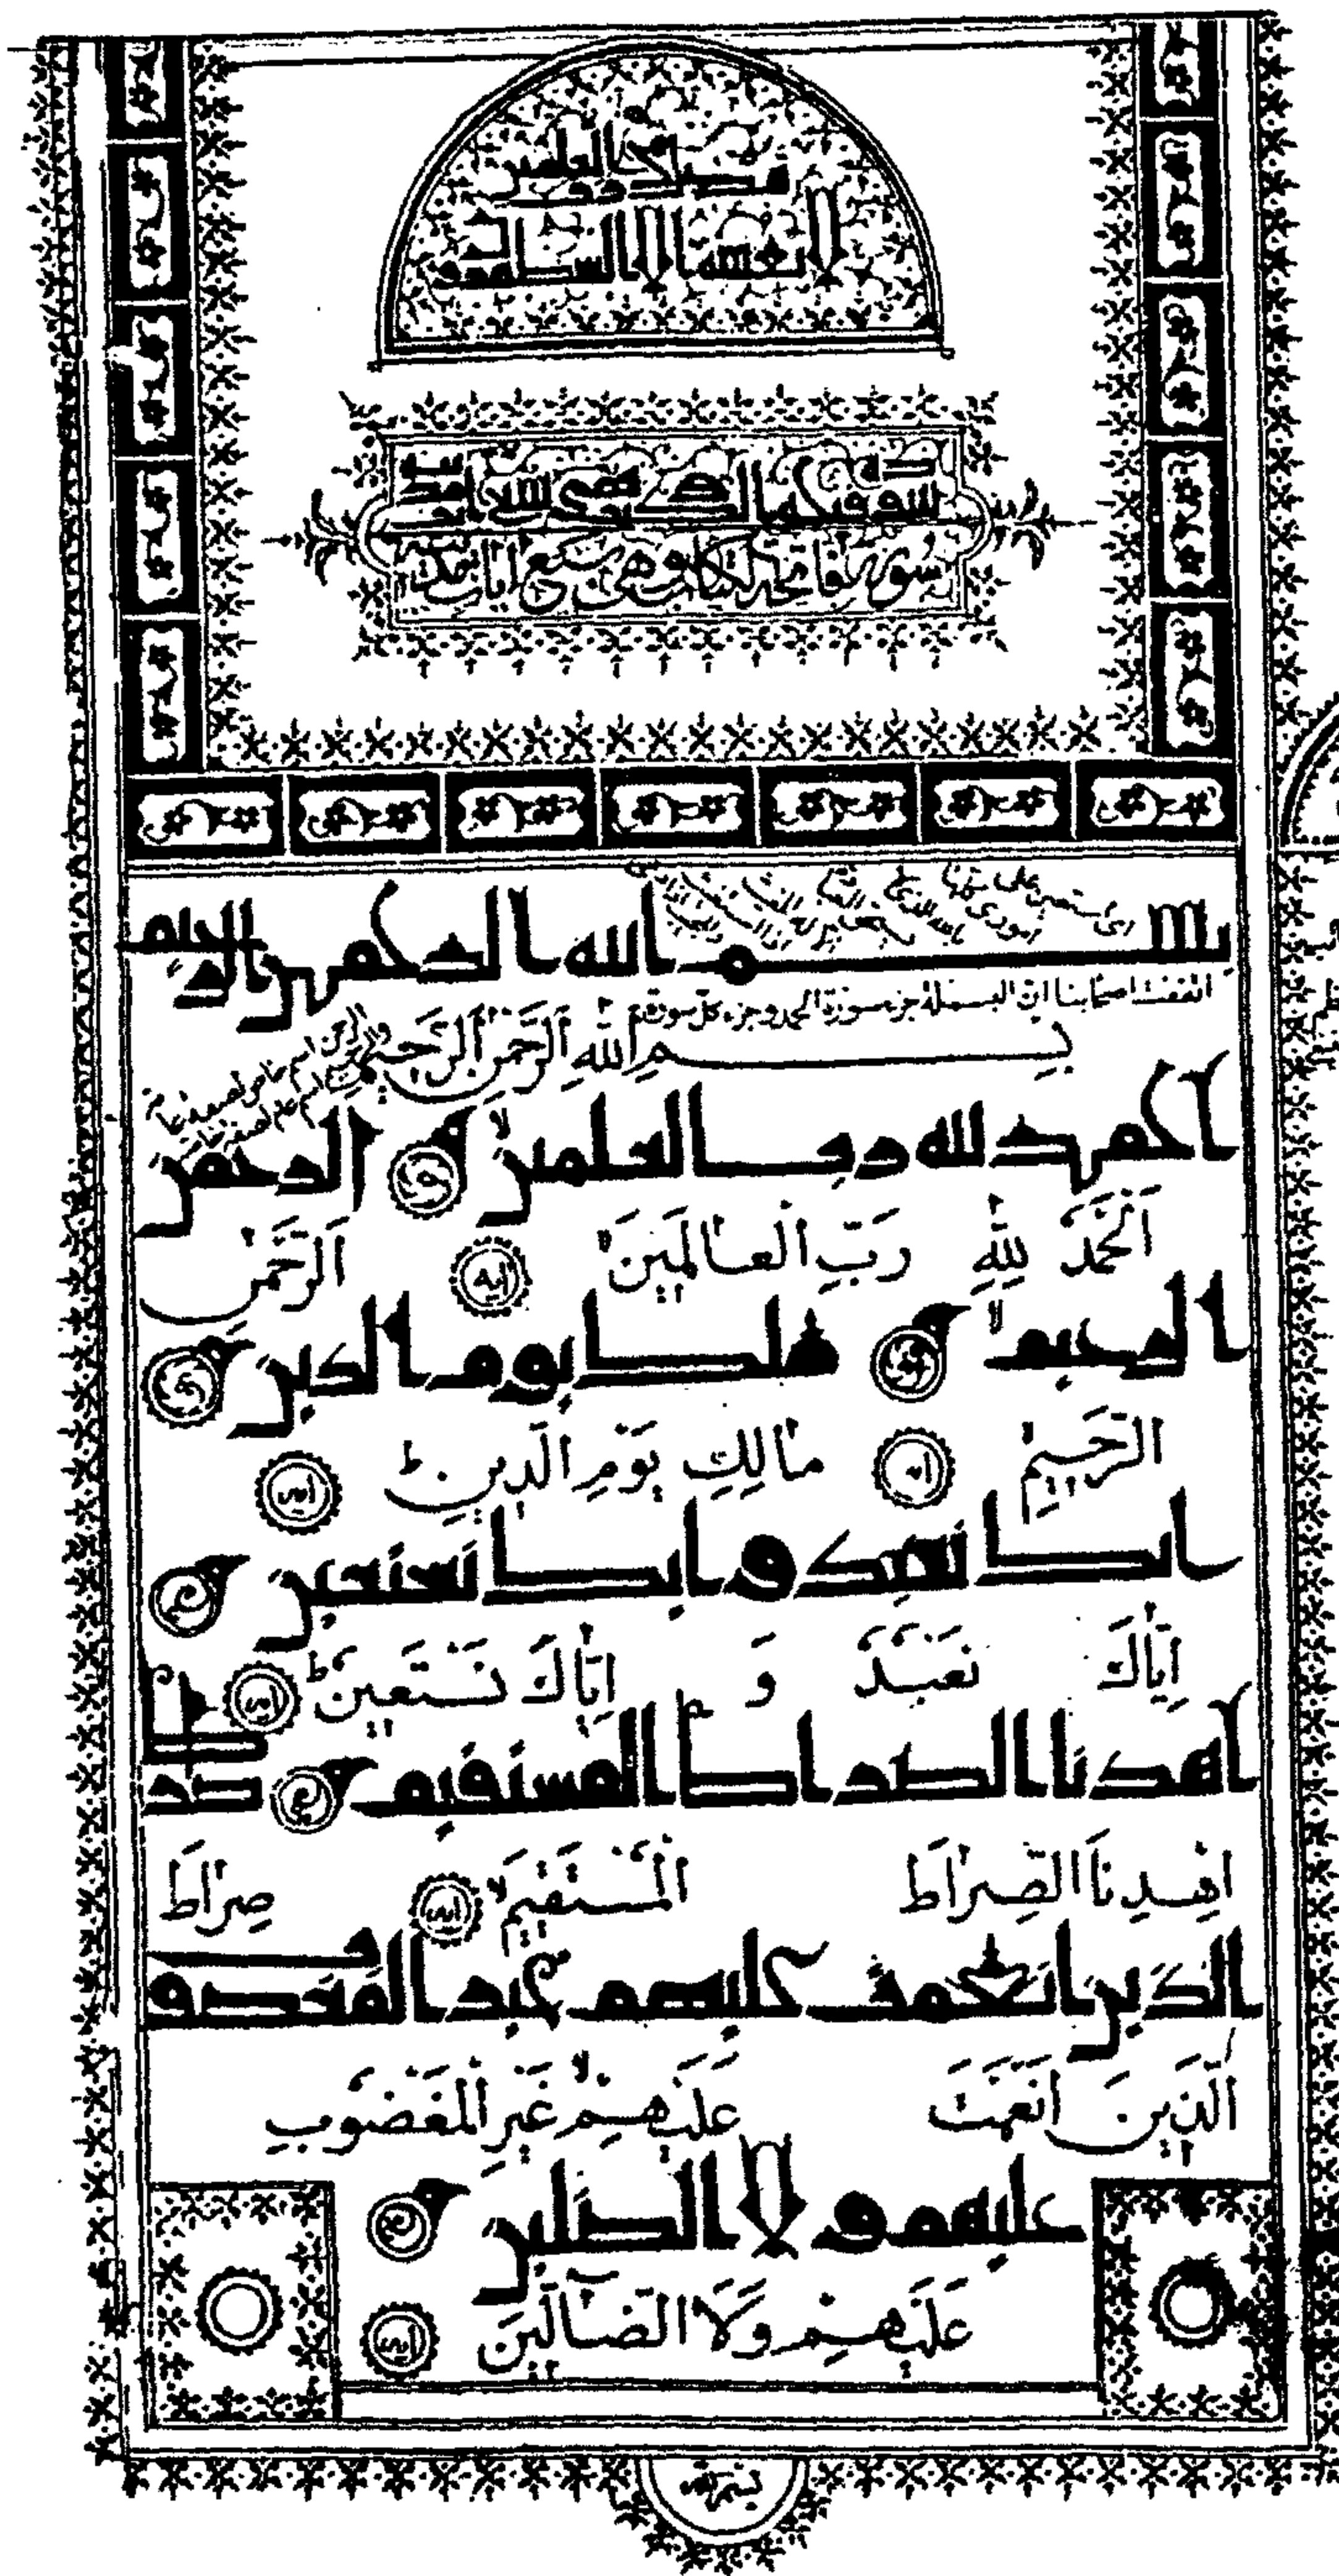 لا يمسه الا المطهرون
سورة فاتحة الكتاب وهي سبع ايات
سورة فاتحة الكتاب وهي سبع ايات
بسم الله الرحمن الرحيم
اتفقت اصحابنا ان البسملة جزء سورة الحمد وجزء كل سورة
بِسْمِ اللّٰهِ الرَّحْمٰنِ الرَّحِيمِ
الحمد لله رب العلمين الرحمن
اَلْحَمْدُ لِلّٰهِ رَبِّ الْعٰالَمِينَ ۙ ايه اَلرَّحْمٰنِ
الرحيم ۙ ملك يوم الدين
الرَّحِيمِ ايه مٰالِكِ يَوْمِ الدِّينِ ط ايه
اياك نعبد و اياك نستعين
اِيّٰاكَ نَعْبُدُ وَ اِيّٰاكَ نَسْتَعِينُ ط ايه
اهدنا الصراط المستقيم صراط
اِهْدِنَا الصِّرٰاطَ الْمُسْتَقِيمَ ۙ ايه صِرٰاطَ
الذين انعمت عليهم غير المغضوب
الَّذِينَ اَنْعَمْتَ عَلَيْهِمْ ۙ غَيْرِ الْمَغْضُوبِ
عليهم ولا الضالين
عَلَيْهِمْ وَلَا الضّٰٓالِّينَ ايه